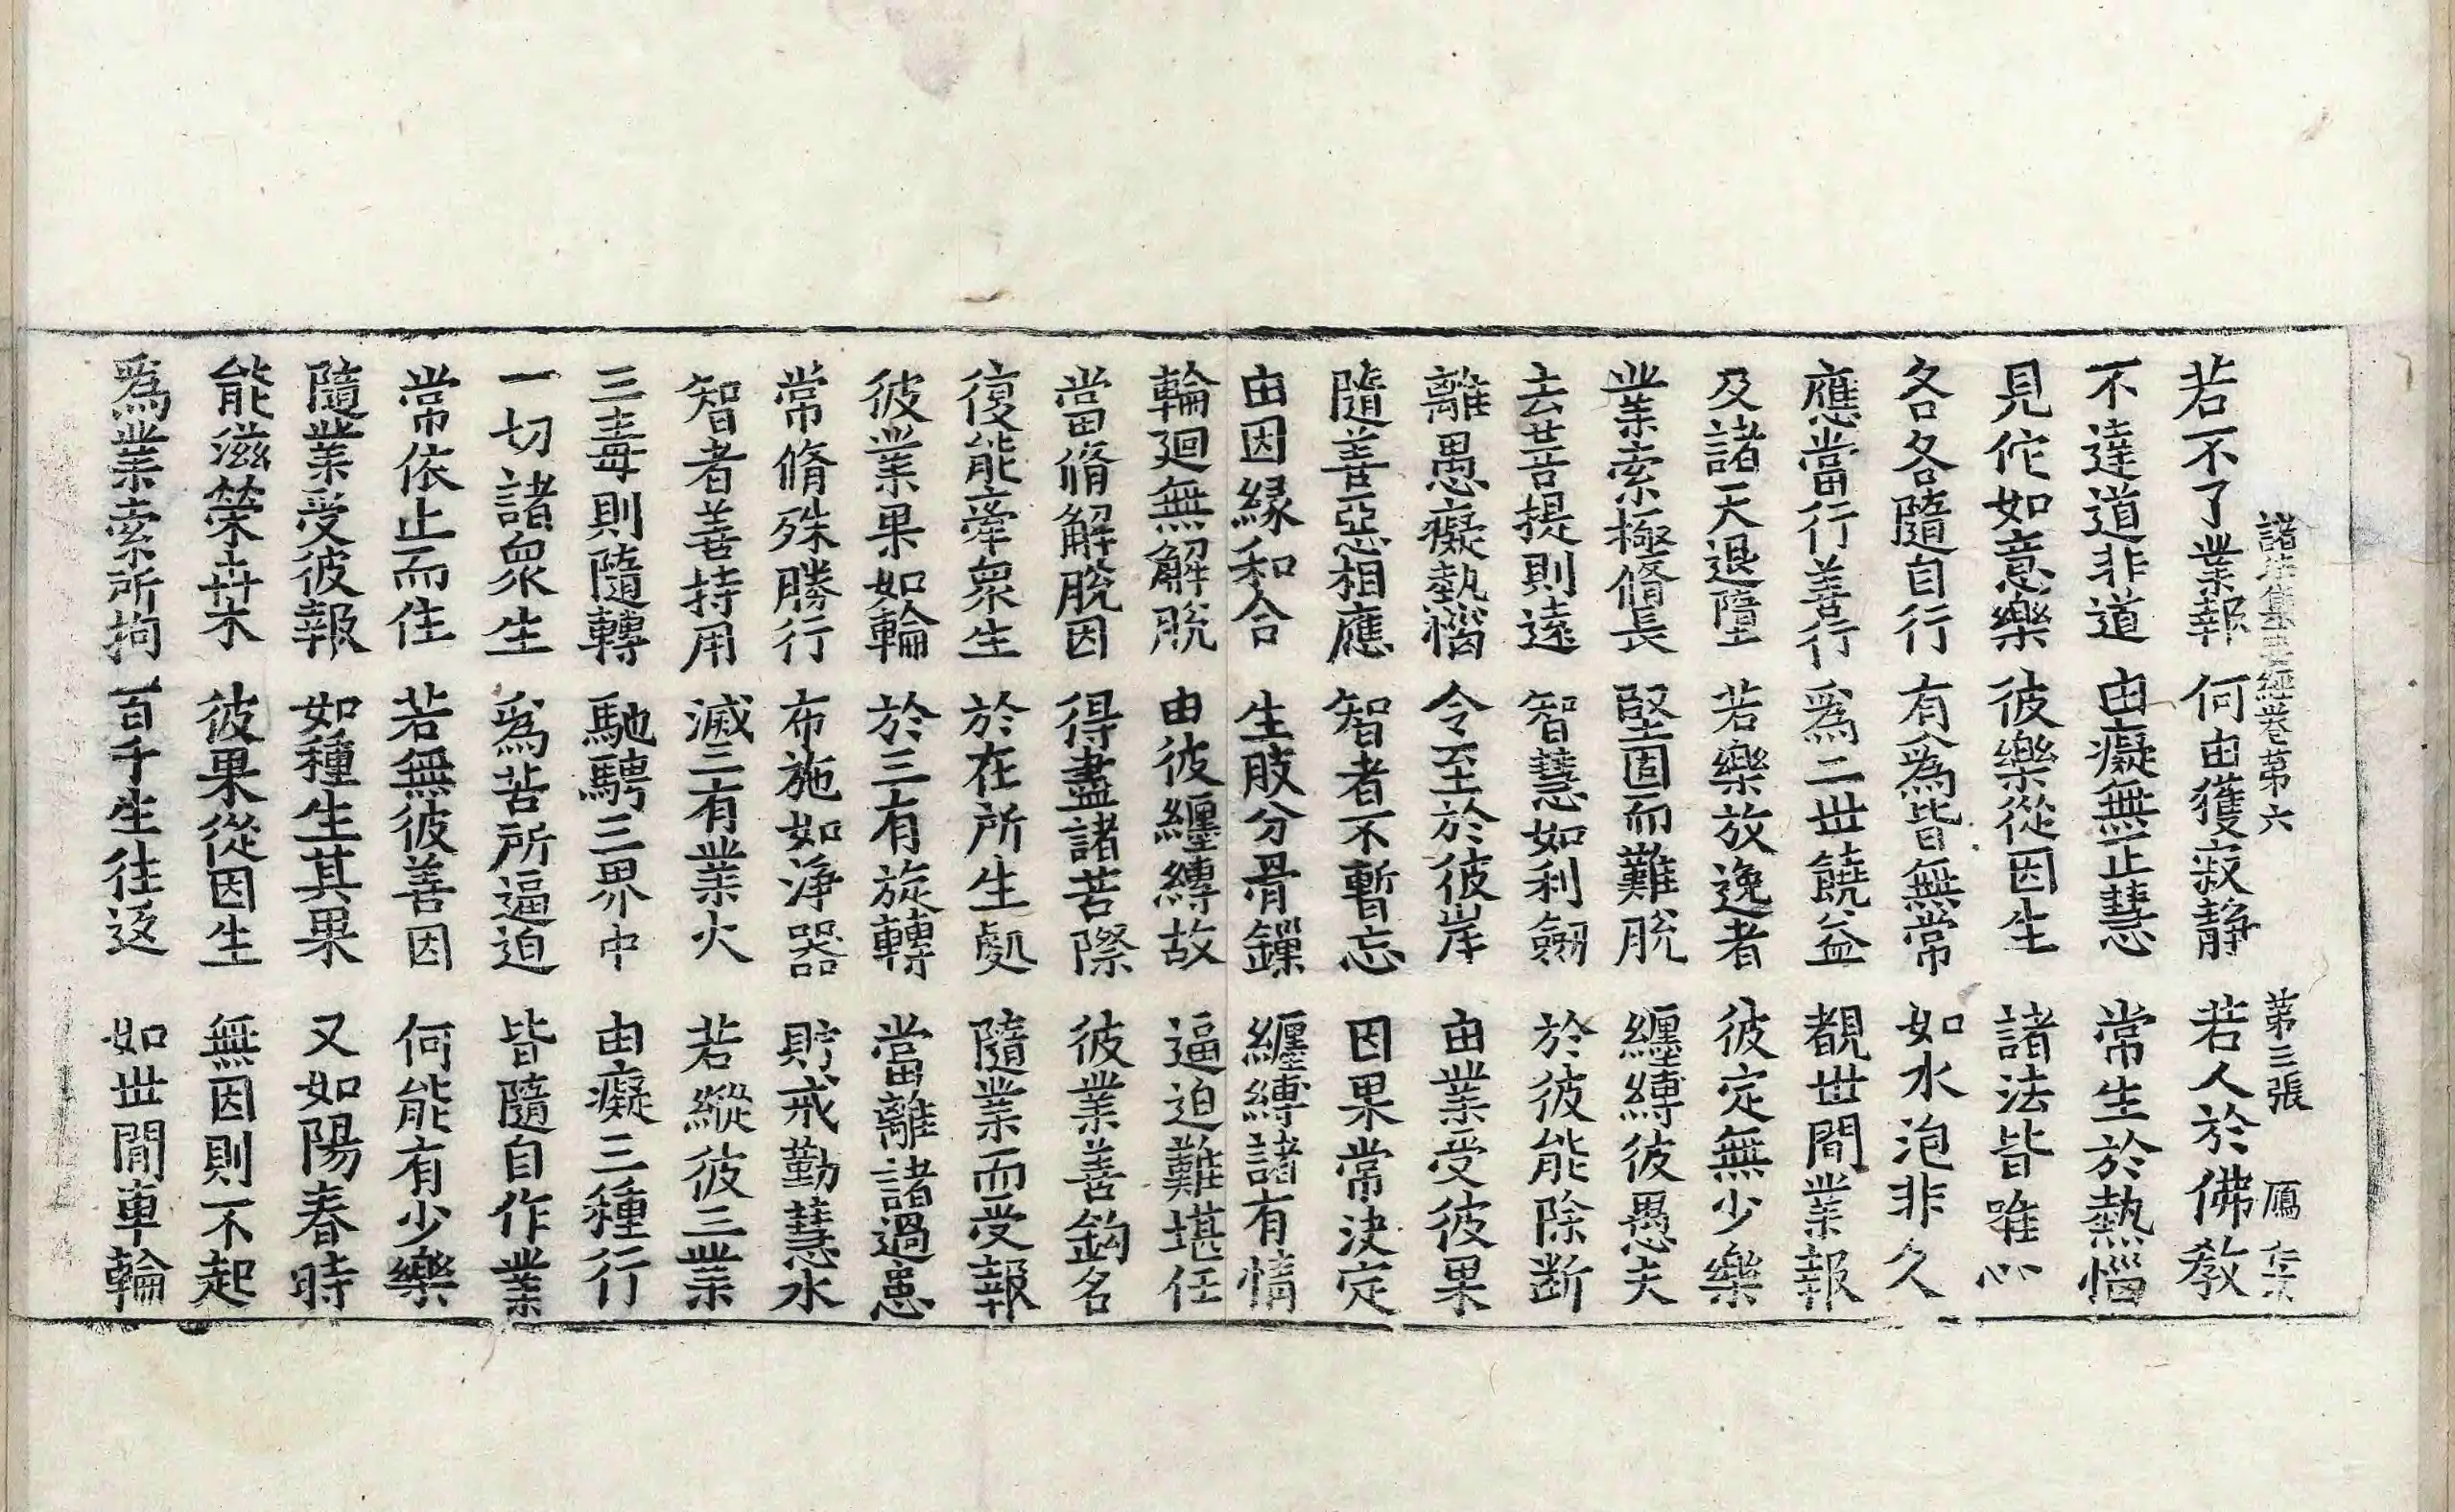 諸法集要經卷第六 第三張 鴈
若不了業報 何由獲寂静 若人於佛教
不達道非道 由癡無正慧 常生於熱惱
見佗如意樂 彼樂從因生 諸法皆唯心
各各隨自行 有為皆無常 如水泡非久
應當行善行 爲二世饒益 覩世間業報
及諸天退墮 若樂放逸者 彼定無少樂
業索極脩長 堅固而難脫 纏縛彼愚夫
去菩提則遠 智慧如利劒 於彼能除断
離愚癡熱惱 令至於彼岸 由業受彼果
隨善惡相應 智者不暫忘 因果常決定
由因緣和合 生肢分骨鏁 纏縛諸有情
輪廻無解脫 由彼纏縛故 逼迫難堪任
當脩解脫因 得盡諸苦際 彼業善鈎名
復能牽衆生 於在所生處 隨業而受報
彼業果如輪 於三有旋轉 當離諸過患
常脩殊勝行 布施如浄器 貯戒勤慧水
智者善持用 滅三有業火 若縱彼三業
三毒則隨轉 馳騁三界中 由癡三種行
一切諸衆生 爲苦所逼迫 皆隨自作業
常依止而住 若無彼善因 何能有少樂
隨業受彼報 如種生其果 又如陽春時
能滋榮卉木 彼果從因生 無因則不起
爲業索所拘 百千生往返 如世閒車輪